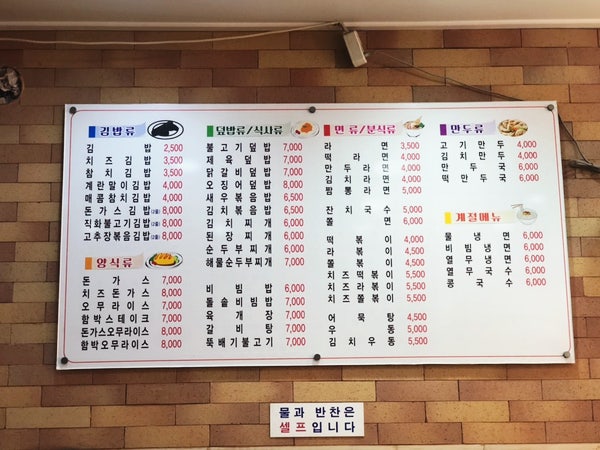 김밥류
김밥 2,500
치즈김밥 3,500
참치김밥 3,500
계란말이김밥 4,000
매콤참치김밥 4,000
돈가스김밥 8,000
직화불고기김밥 8,000
고추장볶음김밥 8,000
양식류
돈가스 7,000
치즈돈가스 8,000
오무라이스 7,000
함박스테이크 7,000
돈가스오무라이스 8,000
함박오무라이스 8,000
덮밥류/식사류
불고기덮밥 7,000
제육덮밥 7,000
닭갈비덮밥 7,000
오징어덮밥 8,000
새우볶음밥 6,500
김치볶음밥 6,500
김치찌개 6,000
된장찌개 6,000
순두부찌개 6,000
해물순두부찌개 7,000
비빔밥 6,000
돌솥비빔밥 7,000
육개장 7,000
갈비탕 7,000
뚝배기불고기 7,000
면류/분식류
라면 3,500
떡라면 4,000
만두라면 4,000
김치라면 4,000
짬뽕라면 5,000
잔치국수 5,000
쫄면 6,000
떡볶이 4,000
라볶이 4,500
쫄볶이 4,500
치즈떡볶이 5,500
치즈라볶이 5,500
치즈쫄볶이 5,500
어묵탕 4,500
우동 5,000
김치우동 5,500
만두류
고기만두 4,000
김치만두 4,000
만두국 6,000
떡만두국 6,000
계절메뉴
물냉면 6,000
비빔냉면 6,000
열무냉면 6,000
열무국수 6,000
콩국수 6,000
물과 반찬은
셀프입니다